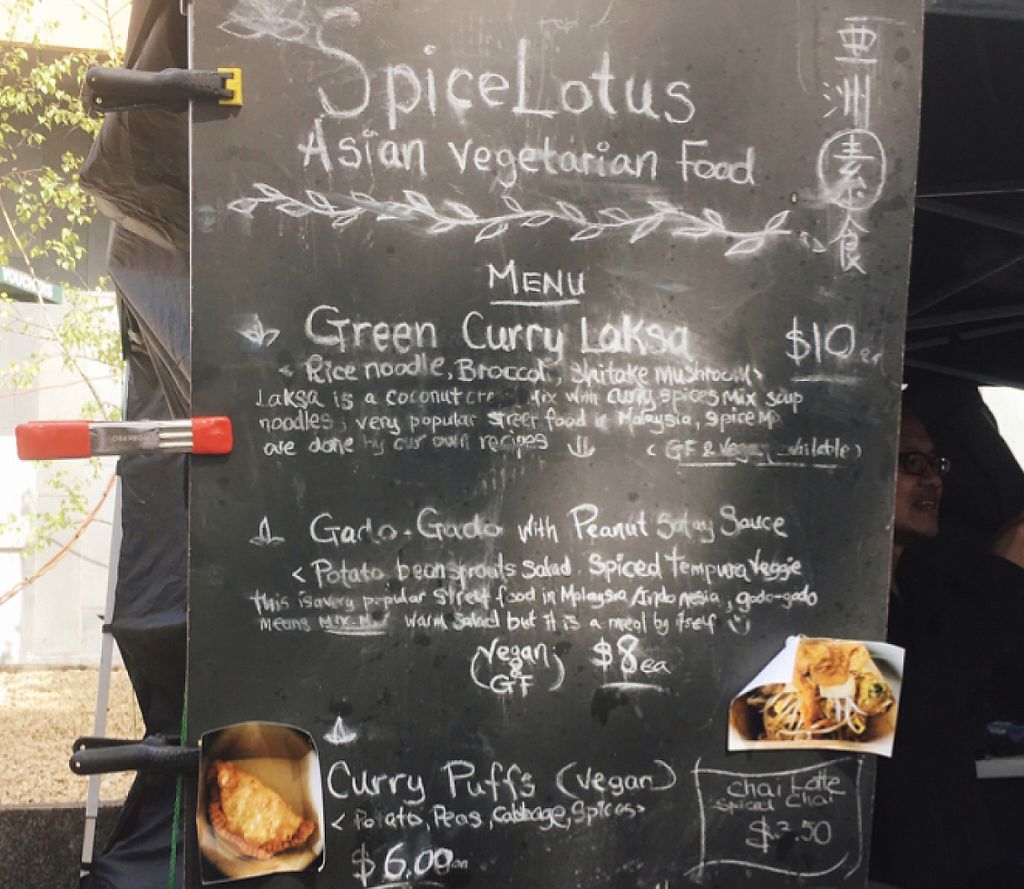 SpiceLotus
Asian Vegetarian Food
亜洲素食
MENU
Green Curry Laksa $10
< Rice noodle, Broccoli, Shitake Mushroom>
Laksa is a coconut mix with curry spices mix soup
noodles, very popular street food in Malaysia, spice
are done by our own recipes
(GF & Vegan available)
Gado-Gado with Peanut Satay Sauce
<Potato, bean sprouts salad, Spiced Tempura Veggie
This is a very popular street food in Malaysia/Indonesia, gado-gado
means warm salad but it is a meal by itself
(Vegan & GF) $8ea
Curry Puffs (vegan)
<Potato, Peas, Cabbage, Spices>
$6.00
Chai Latte
Spiced Chai
$3.50
WORKPRO